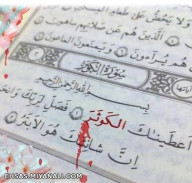 وَلَا يَحُضُّ عَلَىٰ طَعَامِ الْمِسْكِينِ
الَّذِينَ هُمْ عَن صَلَاتِهِمْ سَاهُونَ
هُمْ يُرَاءُونَ وَيَمْنَعُونَ الْمَاعُونَ
سُورَةُ الْكَوْثَرِ
بِسْمِ اللَّهِ الرَّحْمَٰنِ الرَّحِيمِ
أَعْطَيْنَاكَ الْكَوْثَرَ فَصَلِّ لِرَبِّكَ وَانْحَرْ
إِنَّ شَانِئَكَ هُوَ الْأَبْتَرُ
EHSAS.MIYANALI.COM